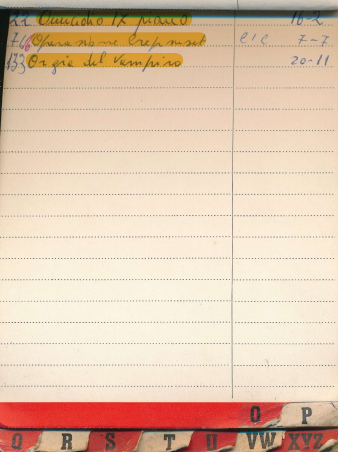 22 Omicidio 17 piano 16-2
76 Operazione Crepuscolo CIC 7-7
133 Orgia del vampiro 20-11
O P
Q R S T U VW XYZ